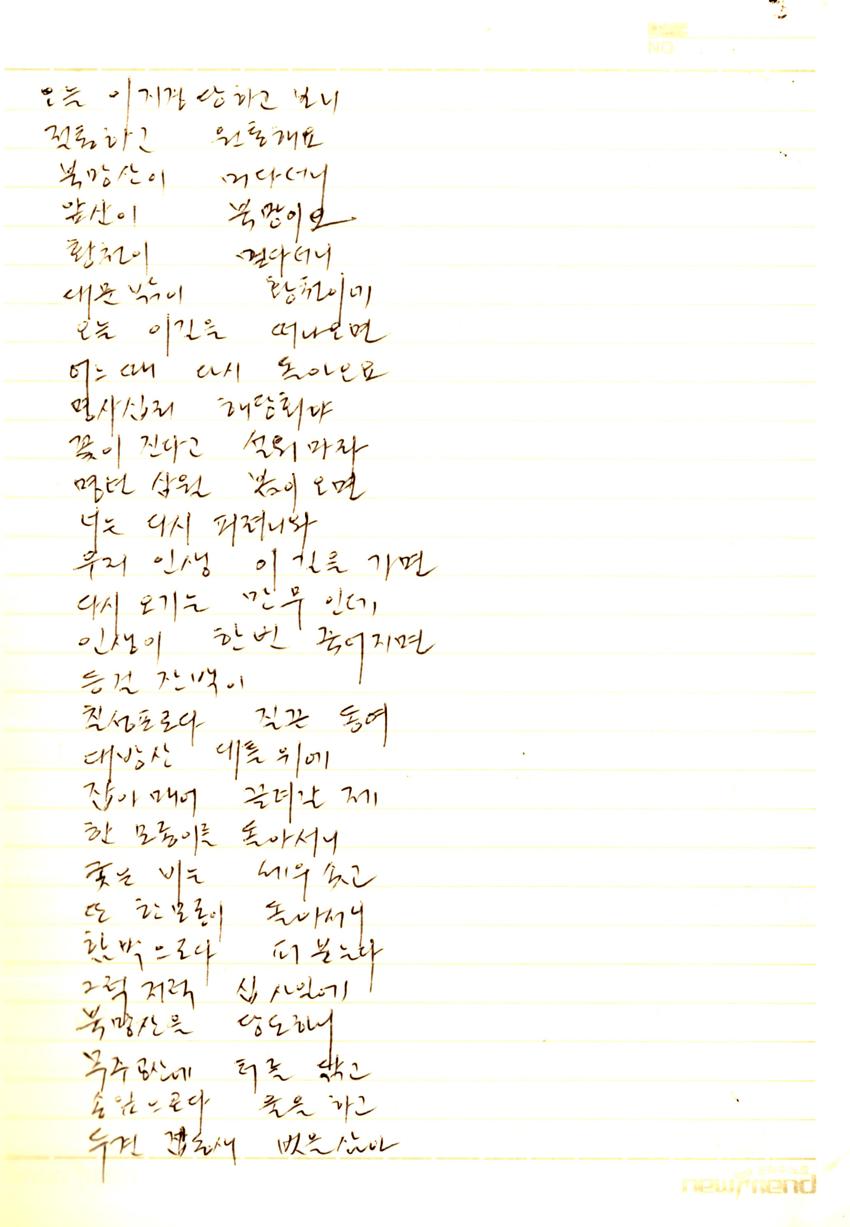 3
NO.
오늘 이지경 당하고 보니
절통하고 원통해요
북망산이 머다더니
앞산이 북망이요
황천이 먼다더니
대문밖이 황천이네
오늘 이길을 떠나오면
어느때 다시 돌아오료
명사십리 해당화야
꽃이 진다고 설워마라
명년 삼월 봄이 오면
너는 다시 피려니와
우리 인생 이 길을 가면
다시 오기는 만무 인데
인생이 한번 죽어지면
등걸
칠성포로다 질끈 동여
대방산 대틀위에
잡아매어 끌려갈 제
한 모롱이를 돌아서니
궂는 비는 세우 솟고
또 한모롱이 돌아서니
함박으로다 퍼붓는다
그럭저럭 십사일에
북망산을 당도하니
무주공산에 터를 닦고
송임으로다 울을 하고
두견 벗을삼아
newfriend